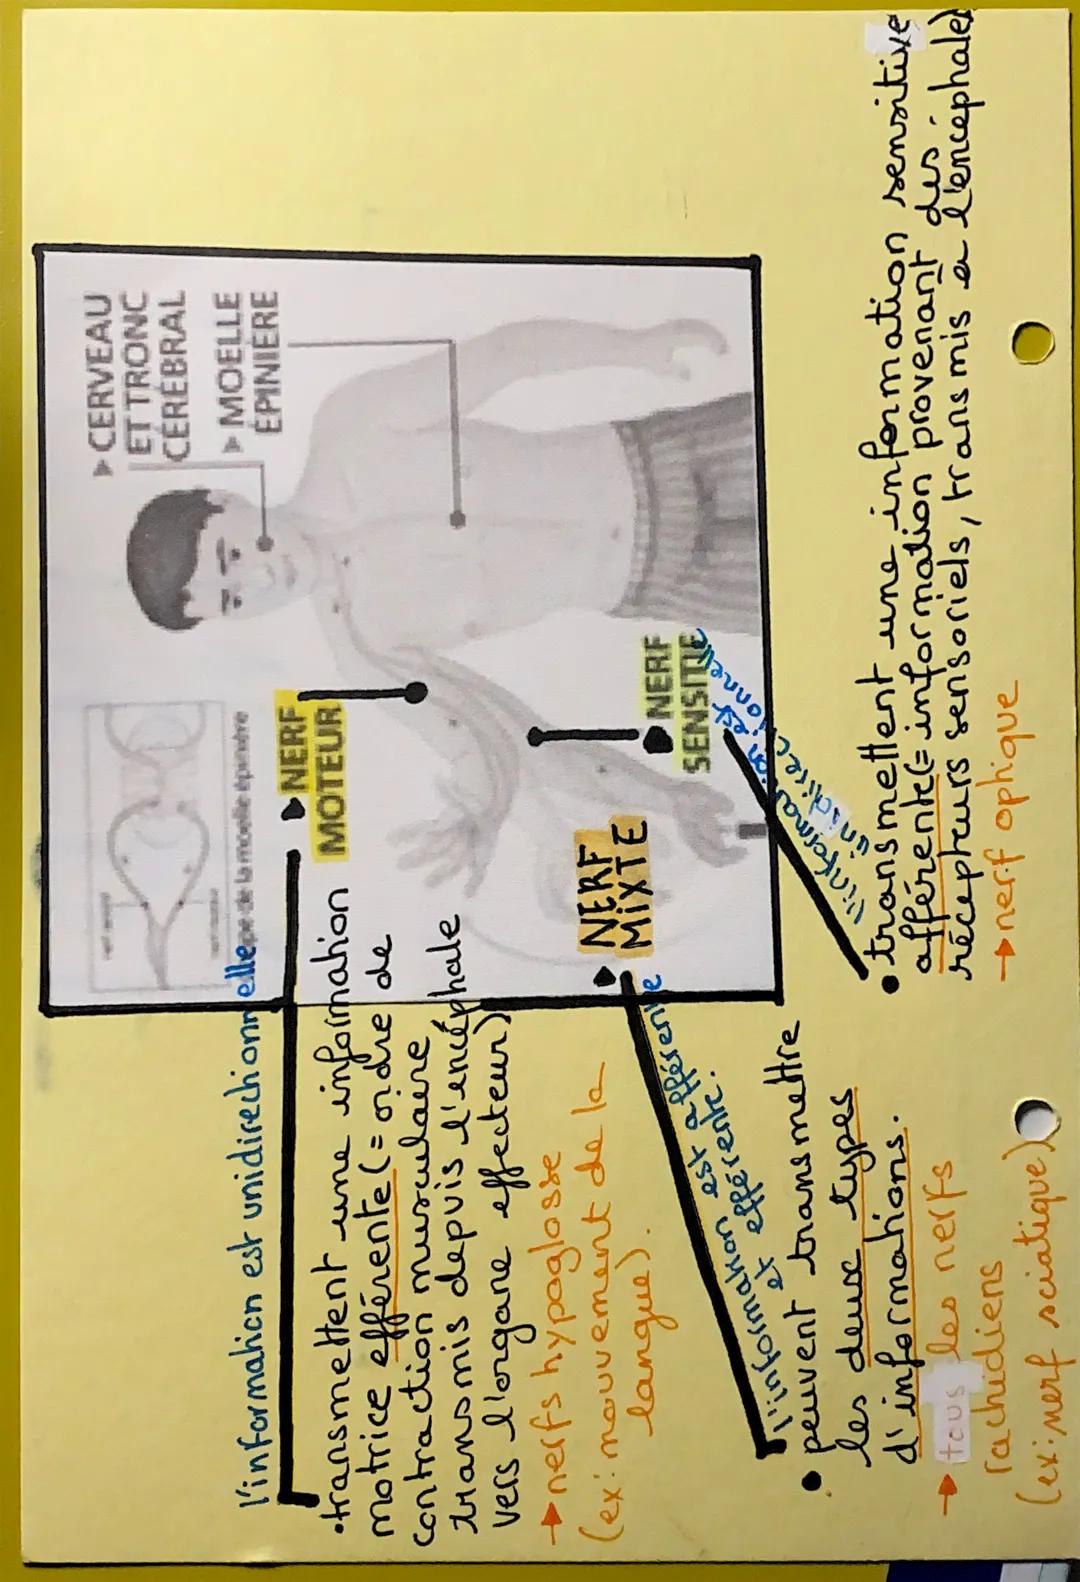 ▶ CERVEAU
ET TRONC
CÉRÉBRAL
▶ MOELLE
ÉPINIÈRE
de la moelle épinière
▶ NERF
MOTEUR
▶ NERF
SENSITIF
▶ NERF
MIXTE
l'information est unidirectionnelle
• transmettent une information
motrice efférente (= ordre de
contraction musculaire
transmis depuis l'encéphale
vers l'organe effecteur)
→ nerfs hypoglosse
(ex: mouvement de la
langue).
l'information est afférente
et efférente.
• peuvent transmettre
les deux types
d'informations.
→ tous les nerfs
rachidiens
(ex: nerf sciatique)
l'information est
unidirectionnelle
• transmettent une information sensitive
afférente (= information provenant des
récepteurs sensoriels, transmis a l'encéphale)
→ nerf optique